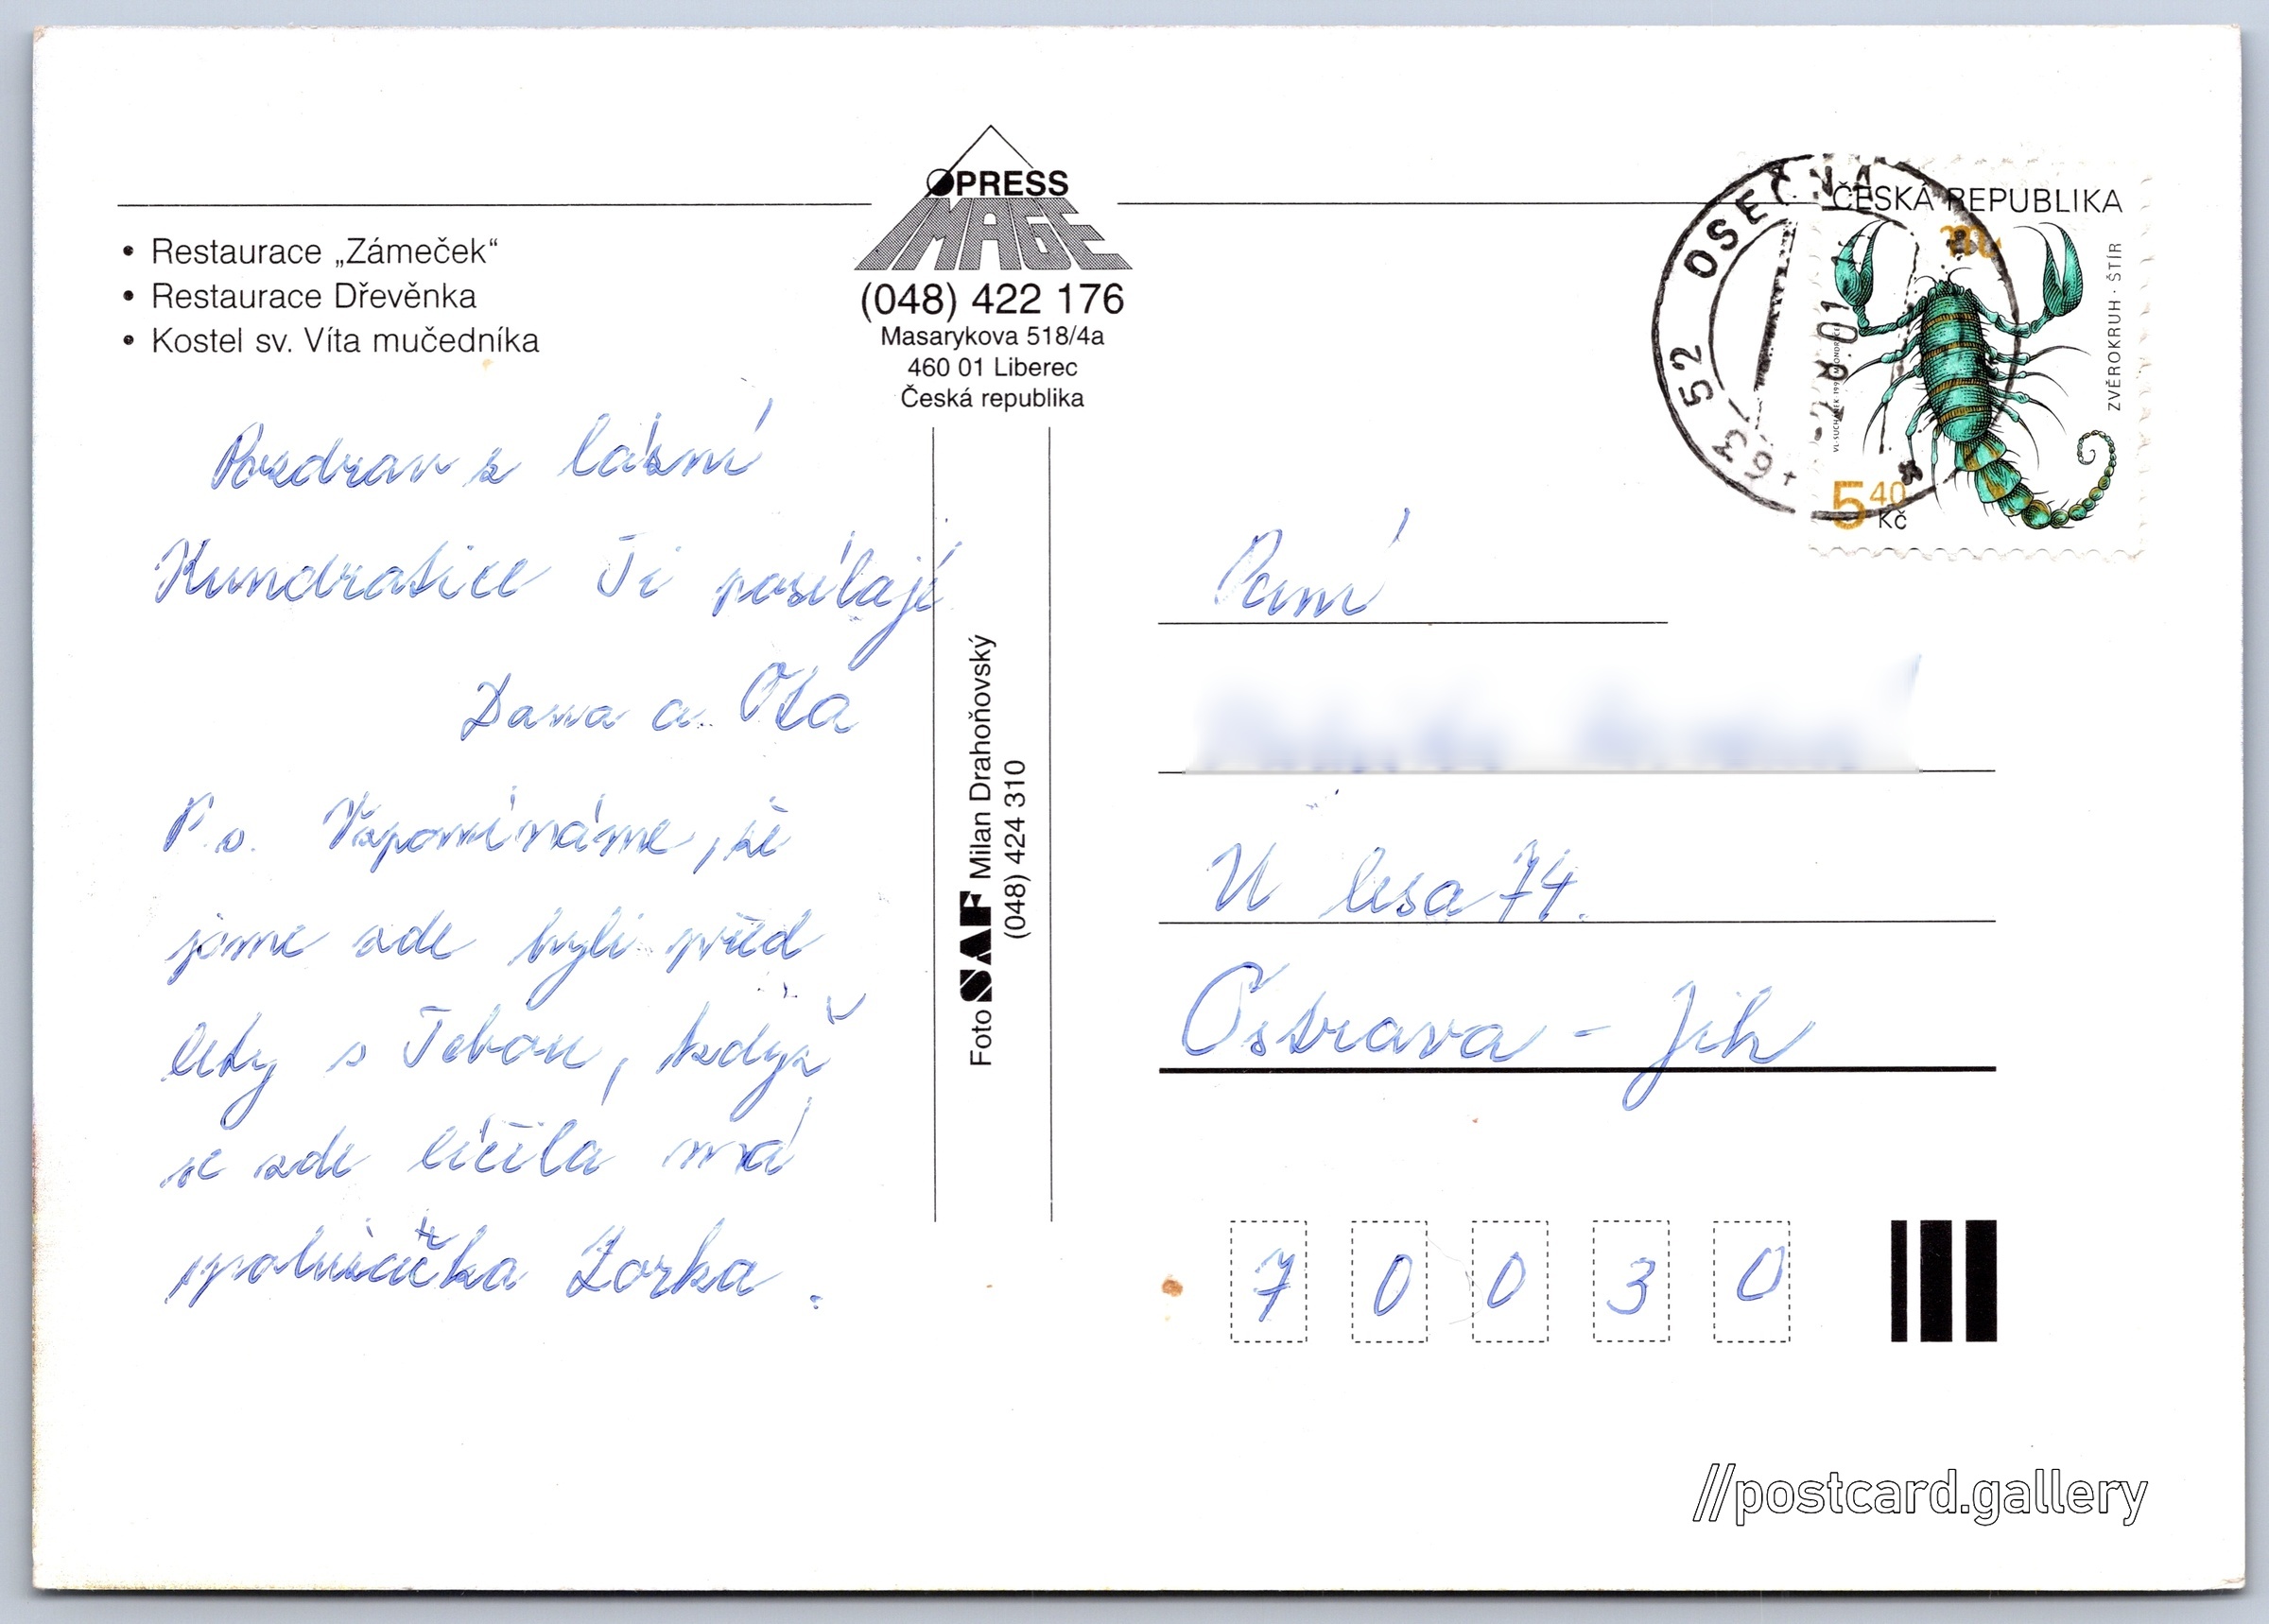 • Restaurace „Zámeček“
• Restaurace Dřevěnka
• Kostel sv. Víta mučedníka
PRESS
IMAGE
(048) 422 176
Masarykova 518/4a
460 01 Liberec
Česká republika
Pozdrav z lázní
Kundratice Ti posílají
Dana a Ota
P.s. Vzpomínáme, že
jsme zde byli před
lety s Tebou, když
se zde léčila má
spolužačka Zorka.
Foto SAF Milan Drahoňovský
(048) 424 310
463 52 OSEČNÁ
-7.8.01
ČESKÁ REPUBLIKA
ZVĚROKRUH · ŠTÍR
5 40
Kč
Paní
U lesa 74.
Ostrava - Jih
7 0 0 3 0
//postcard.gallery